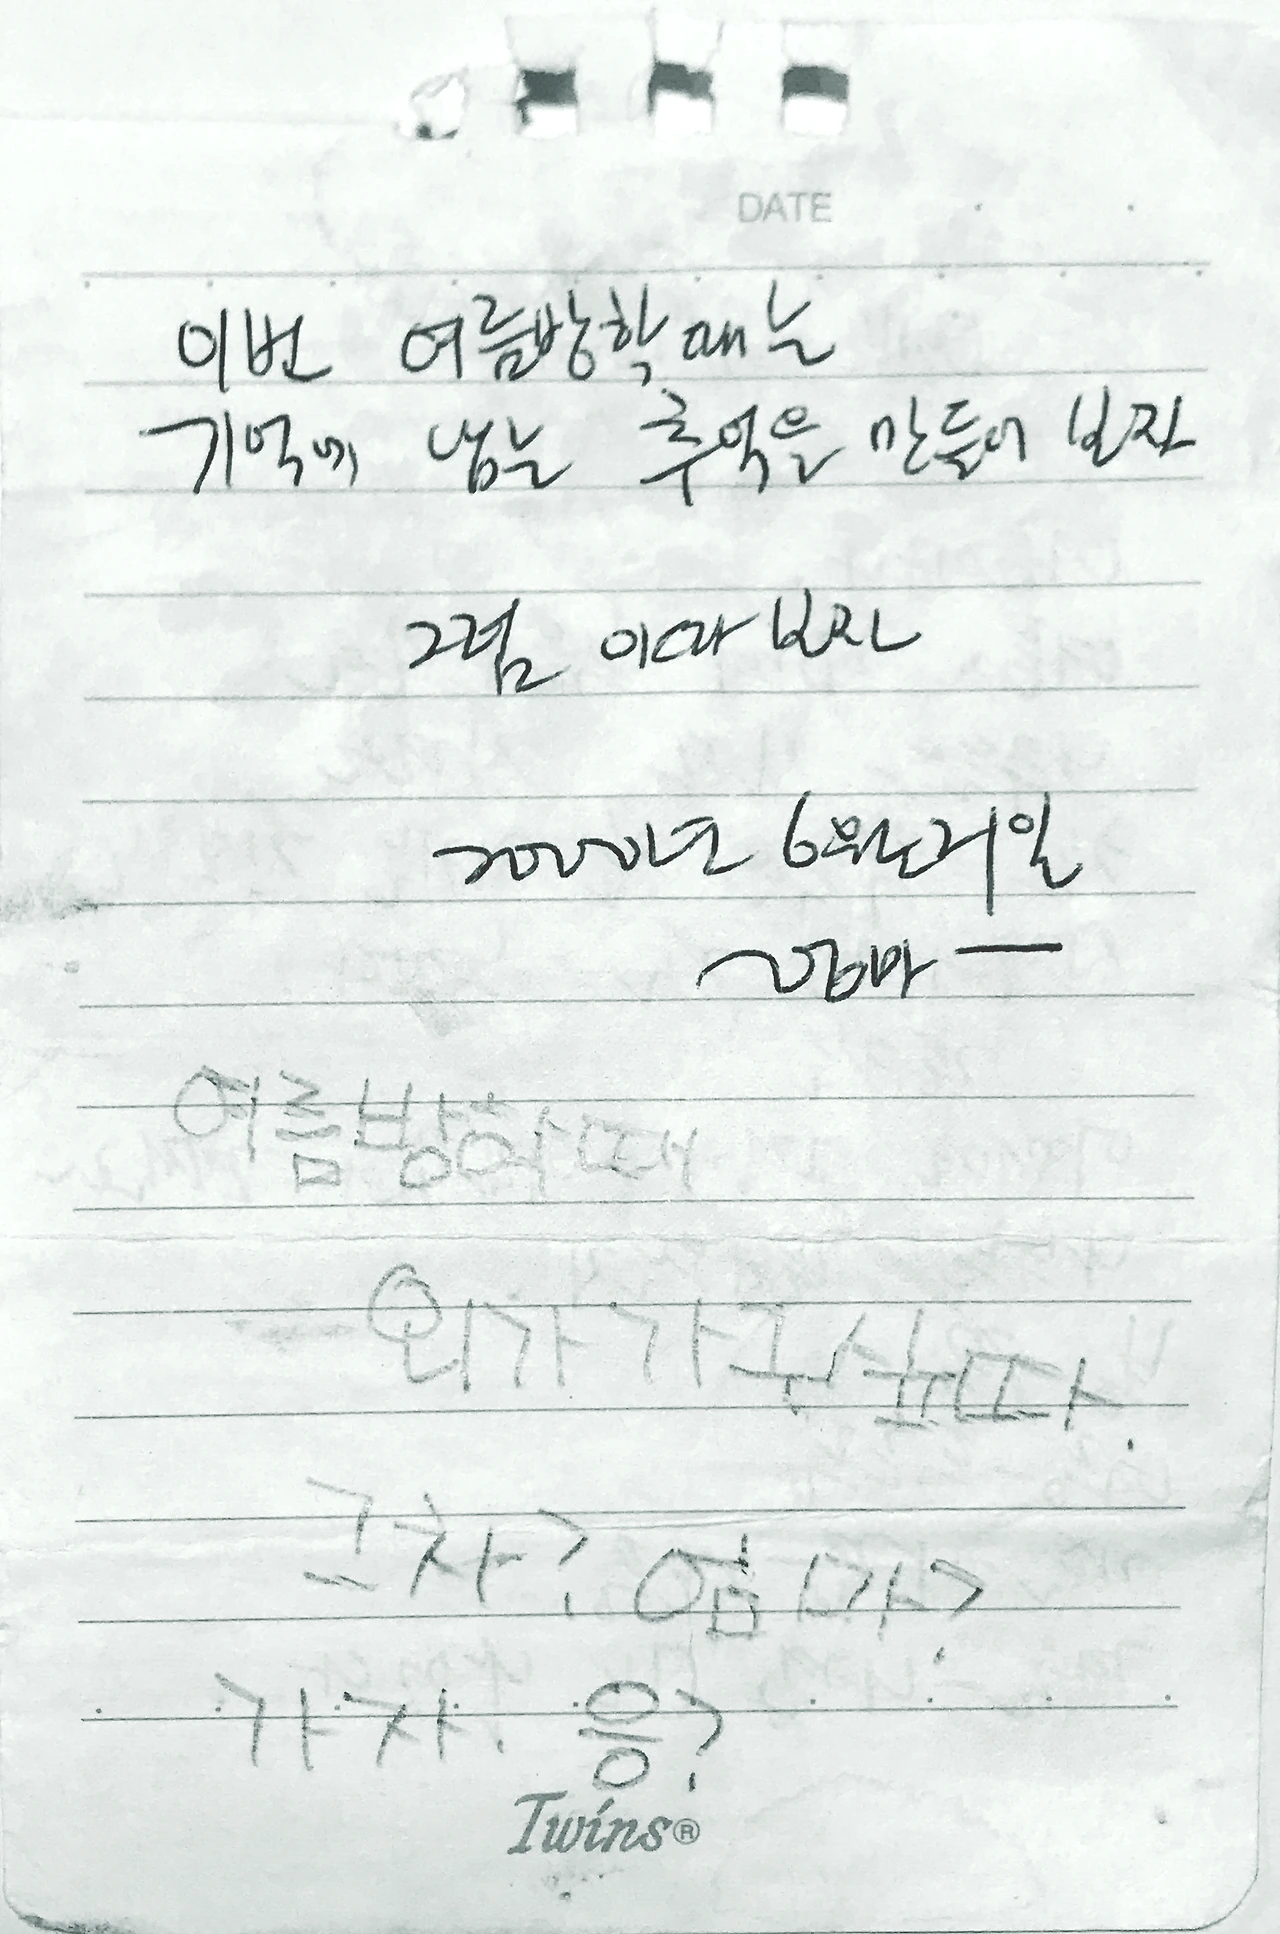 DATE
이번 여름방학때는
기억에 남는 추억을 만들어 보자
그럼 이따 보자
2000년 6월 21일
엄마
여름방학때
외가가구싶따.
고차? 엄마?
가자. 응?
Twins®